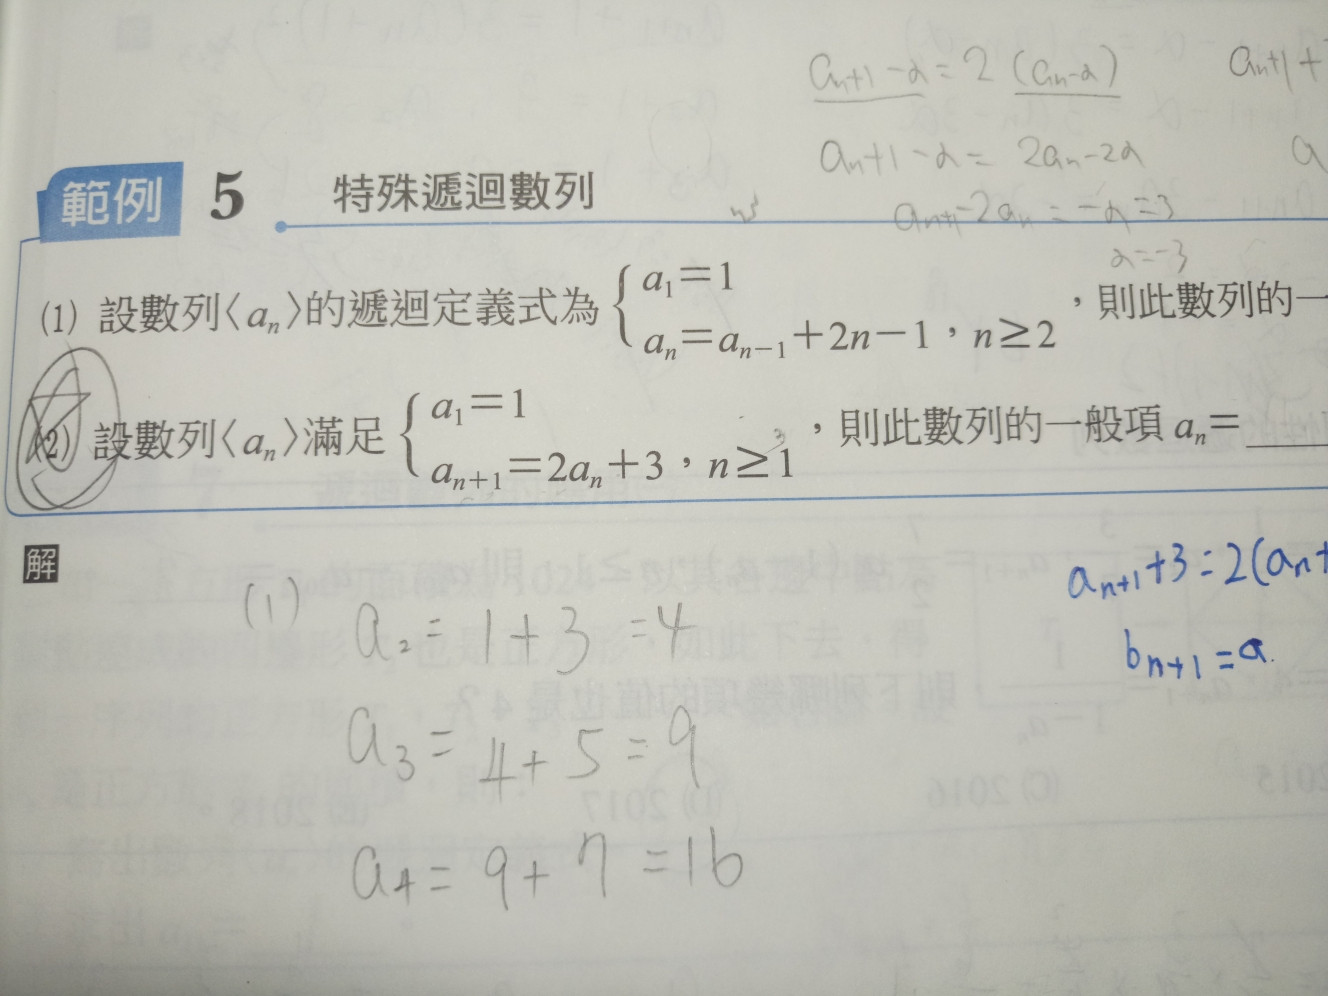 aₙ₊₁-α=2(aₙ-α) aₙ₊₁+
aₙ₊₁-α=2aₙ-2α
aₙ₊₁-2aₙ=-α=3
α=-3
範例 5 特殊遞迴數列
(1) 設數列〈aₙ〉的遞迴定義式為 { a₁=1
aₙ=aₙ₋₁+2n-1，n≥2 ，則此數列的一
(2) 設數列〈aₙ〉滿足 { a₁=1
aₙ₊₁=2aₙ+3，n≥1 ，則此數列的一般項 aₙ=
解
aₙ₊₁+3=2(aₙ+
bₙ₊₁=a
(1) a₂=1+3=4
a₃=4+5=9
a₄=9+7=16